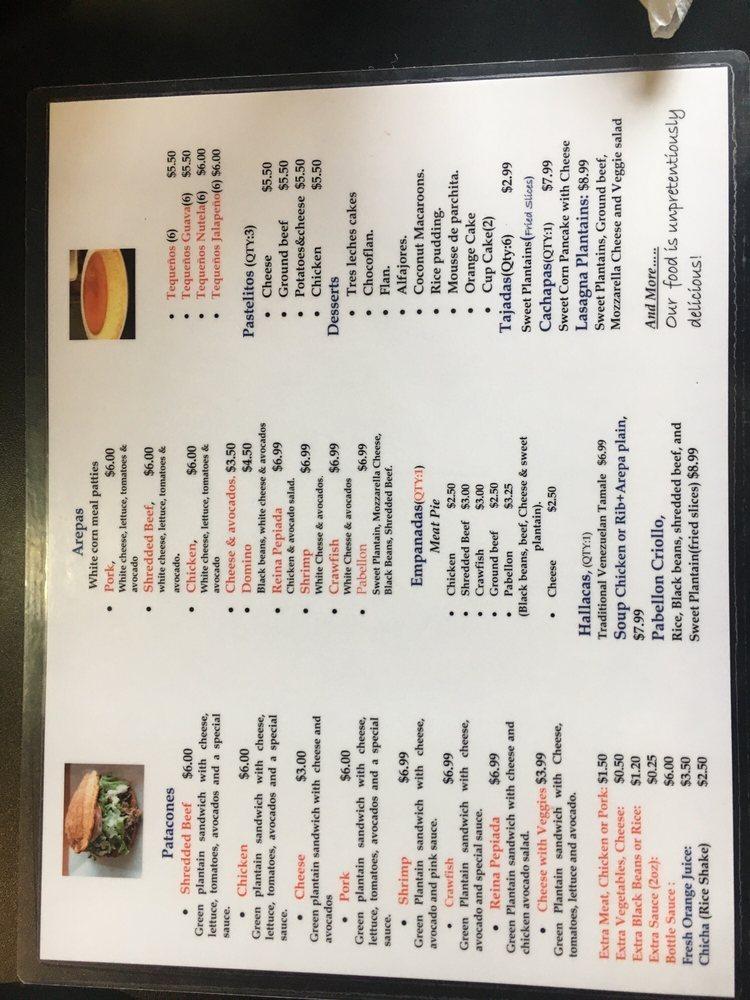 Patacones
• Shredded Beef $6.00
Green plantain sandwich with cheese,
lettuce, tomatoes, avocados and a special
sauce.
• Chicken $6.00
Green plantain sandwich with cheese,
lettuce, tomatoes, avocados and a special
sauce.
• Cheese $3.00
Green plantain sandwich with cheese and
avocados
• Pork $6.00
Green plantain sandwich with cheese,
lettuce, tomatoes, avocados and a special
sauce.
• Shrimp $6.99
Green Plantain sandwich with cheese,
avocado and pink sauce.
• Crawfish $6.99
Green Plantain sandwich with cheese,
avocado and special sauce.
• Reina Pepiada $6.99
Green Plantain sandwich with cheese and
chicken avocado salad.
• Cheese with Veggies $3.99
Green Plantain sandwich with Cheese,
tomatoes, lettuce and avocado.
Extra Meat, Chicken or Pork: $1.50
Extra Vegetables, Cheese: $0.50
Extra Black Beans or Rice: $1.20
Extra Sauce (2oz): $0.25
Bottle Sauce : $6.00
Fresh Orange Juice: $3.50
Chicha (Rice Shake) $2.50
Arepas
White corn meal patties
• Pork, $6.00
White cheese, lettuce, tomatoes &
avocado
• Shredded Beef, $6.00
white cheese, lettuce, tomatoes &
avocado.
• Chicken, $6.00
White cheese, lettuce, tomatoes &
avocado
• Cheese & avocados, $3.50
• Domino $4.50
Black beans, white cheese & avocados
• Reina Pepiada $6.99
Chicken & avocado salad.
• Shrimp $6.99
White Chesse & avocados.
• Crawfish $6.99
White Chesse & avocados
• Pabellon $6.99
Sweet Plantain, Mozzarella Cheese,
Black Beans, Shredded Beef.
Empanadas(QTY:1)
Meat Pie
• Chicken $2.50
• Shredded Beef $3.00
• Crawfish $3.00
• Ground beef $2.50
• Pabellon $3.25
(Black beans, beef, Cheese & sweet
plantain).
• Cheese $2.50
Hallacas, (QTY:1)
Traditional Venezuelan Tamale $6.99
Soup Chicken or Rib+Arepa plain,
$7.99
Pabellon Criollo,
Rice, Black beans, shredded beef, and
Sweet Plantain(fried slices) $8.99
• Tequeños (6) $5.50
• Tequeños Guava(6) $5.50
• Tequeños Nutela(6) $6.00
• Tequeños Jalapeño(6) $6.00
Pastelitos (QTY:3)
• Cheese $5.50
• Ground beef $5.50
• Potatoes&cheese $5.50
• Chicken $5.50
Desserts
• Tres leches cakes
• Chocoflan.
• Flan.
• Alfajores.
• Coconut Macaroons.
• Rice pudding.
• Mousse de parchita.
• Orange Cake
• Cup Cake(2)
Tajadas(Qty:6) $2.99
Sweet Plantains(Fried Slices)
Cachapas(QTY:1) $7.99
Sweet Corn Pancake with Cheese
Lasagna Plantains: $8.99
Sweet Plantains, Ground beef,
Mozzarella Cheese and Veggie salad
And More.....
Our food is unpretentiously
delicious!